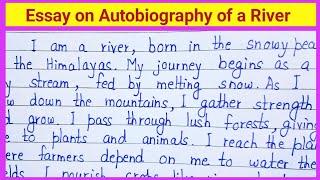 Essay on Autobiography of a River
I am a river, born in the snowy pea
the Himalayas. My journey begins as a
y stream, fed by melting snow. As I
w down the mountains, I gather strength
d grow. I pass through lush forests, giving
e to plants and animals. I reach the plai
ere farmers depend on me to water the